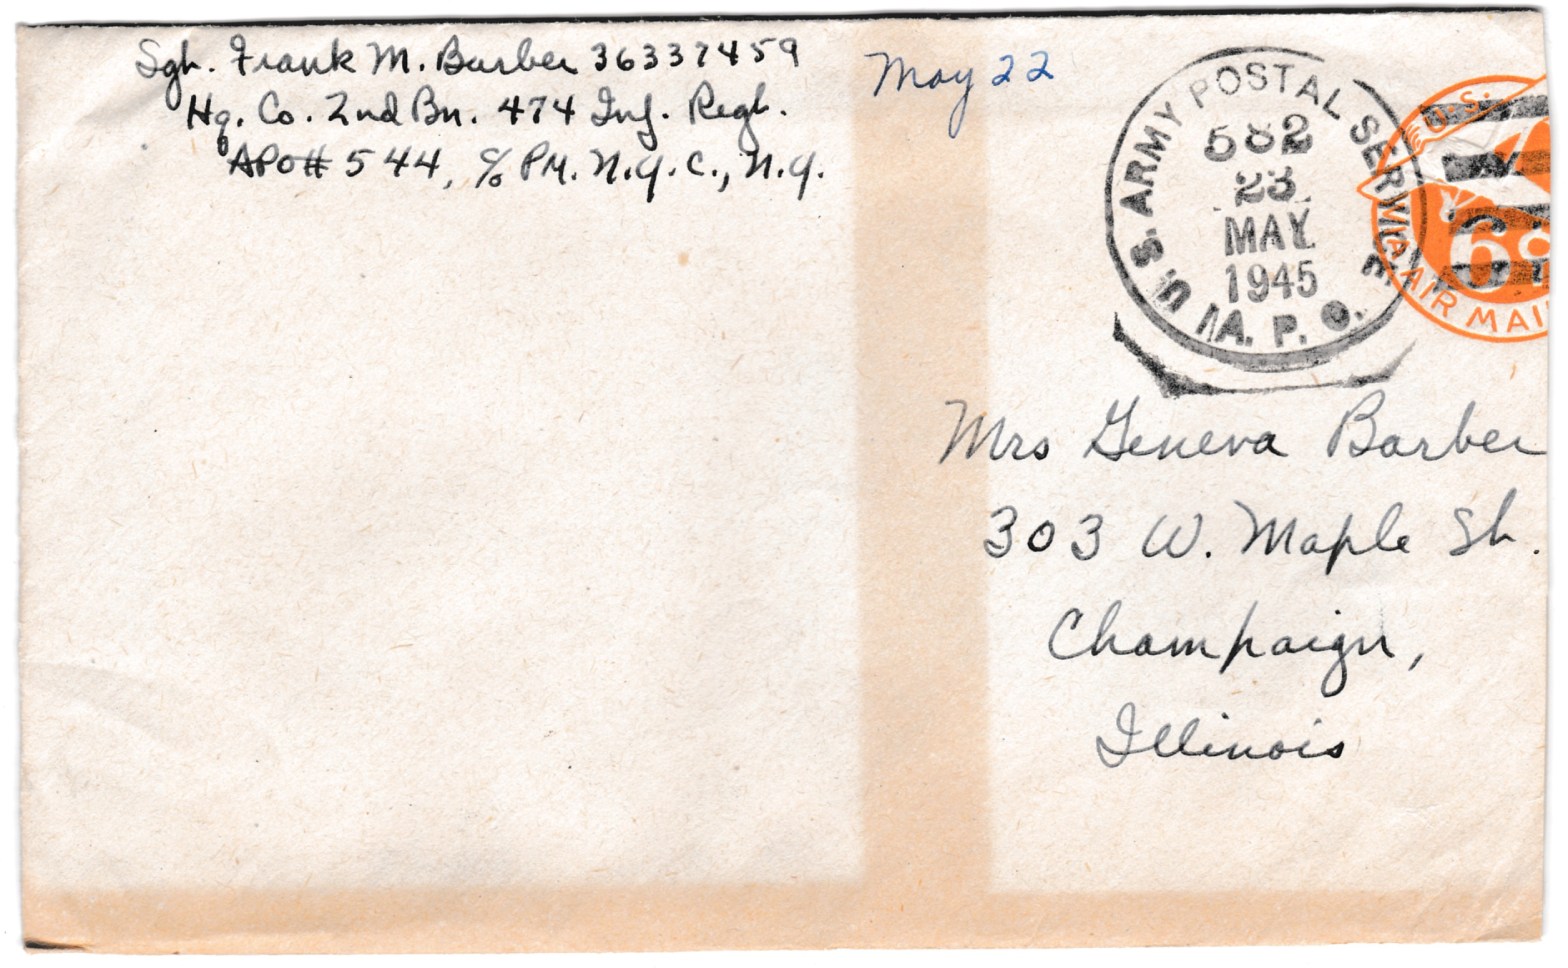 Sgt. Frank M. Barber 36337459
Hq. Co. 2nd Bn. 474 Inf. Regt.
APO# 544, c/o PM. N.Y.C., N.Y.
May 22
U.S. ARMY POSTAL SERVICE
582
23
MAY
1945
A. P. O.
U.S.
6¢
VIA AIR MAI
Mrs Geneva Barber
303 W. Maple St.
Champaign,
Illinois